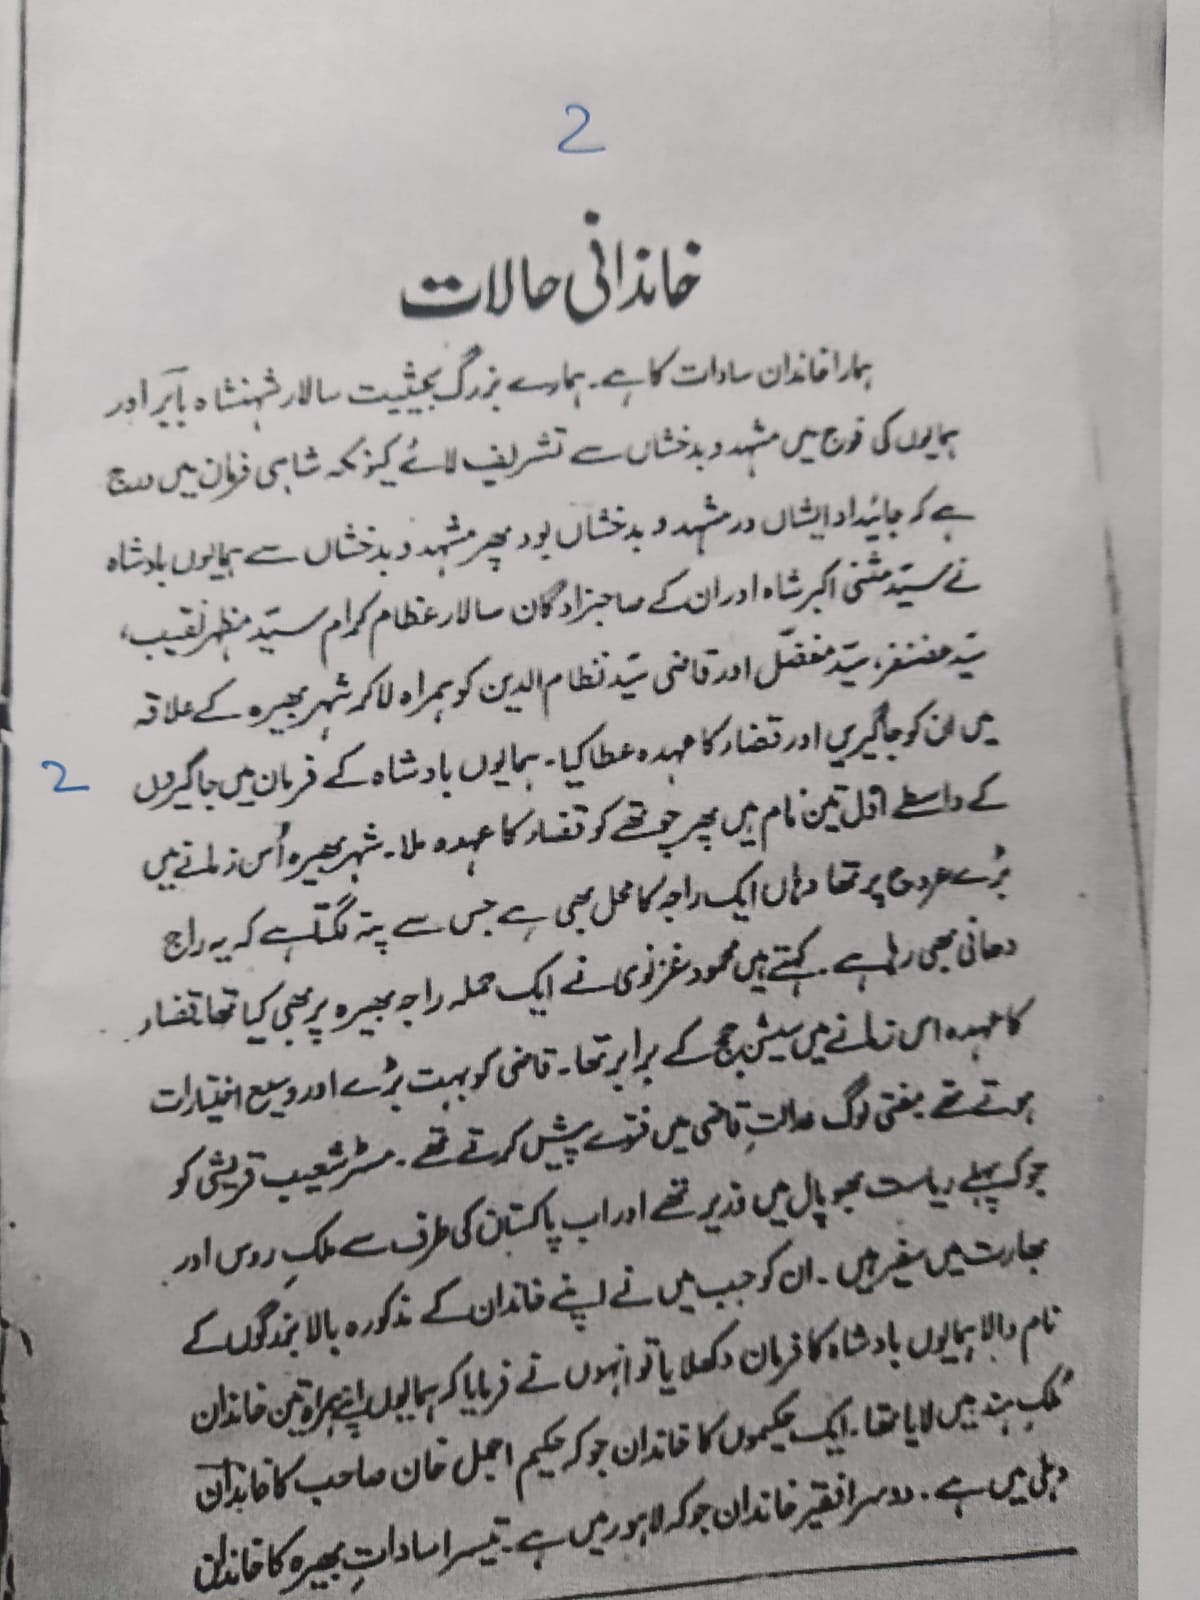 2
خاندانی حالات
ہمارا خاندان سادات کا ہے۔ ہمارے بزرگ بحیثیت سالار شہنشاہ بابر اور
ہمایوں کی فوج میں مشہد و بدخشاں سے تشریف لائے کیونکہ شاہی فرمان میں درج
ہے کہ جائیداد ایشاں در مشہد و بدخشاں بود پھر مشہد و بدخشاں سے ہمایوں بادشاہ
نے سیّد مثنی اکبر شاہ اور ان کے صاحبزادگان سالار عظام کرام سیّد مظہر نقیب،
سیّد مفضل اور قاضی سیّد نظام الدین کو ہمراہ لا کر شہر بھیرہ کے علاقہ
میں ان کو جاگیریں اور قضاء کا عہدہ عطا کیا۔ ہمایوں بادشاہ کے فرمان میں جاگیروں
2
کے واسطے اول تین نام ہیں پھر چوتھے کو قضاء کا عہدہ ملا۔ شہر بھیرہ اُس زمانے میں
بڑے عروج پر تھا وہاں ایک راجہ کا محل بھی ہے جس سے پتہ لگتا ہے کہ یہ راج
دھانی بھی رہا ہے۔ کہتے ہیں محمود غزنوی نے ایک حملہ راجہ بھیرہ پر بھی کیا تھا قضاء
کا عہدہ اس زمانے میں سیشن جج کے برابر تھا۔ قاضی کو بہت بڑے اور وسیع اختیارات
ہوتے تھے مفتی لوگ عدالتِ قاضی میں فتوے پیش کرتے تھے۔ مسٹر شعیب قریشی کو
جو کہ پہلے ریاست بھوپال میں وزیر تھے اور اب پاکستان کی طرف سے ملکِ روس اور
بھارت میں سفیر ہیں۔ ان کو جب میں نے اپنے خاندان کے مذکورہ بالا بزرگوں کے
نام والا ہمایوں بادشاہ کا فرمان دکھلایا تو انہوں نے فرمایا کہ ہمایوں اپنے ہمراہ تین خاندان
مُلکِ ہند میں لایا تھا۔ ایک حکیموں کا خاندان جو کہ حکیم اجمل خان صاحب کا خاندان
دہلی میں ہے۔ دوسرا فقیر خاندان جو کہ لاہور میں ہے۔ تیسرا ساداتِ بھیرہ کا خاندان